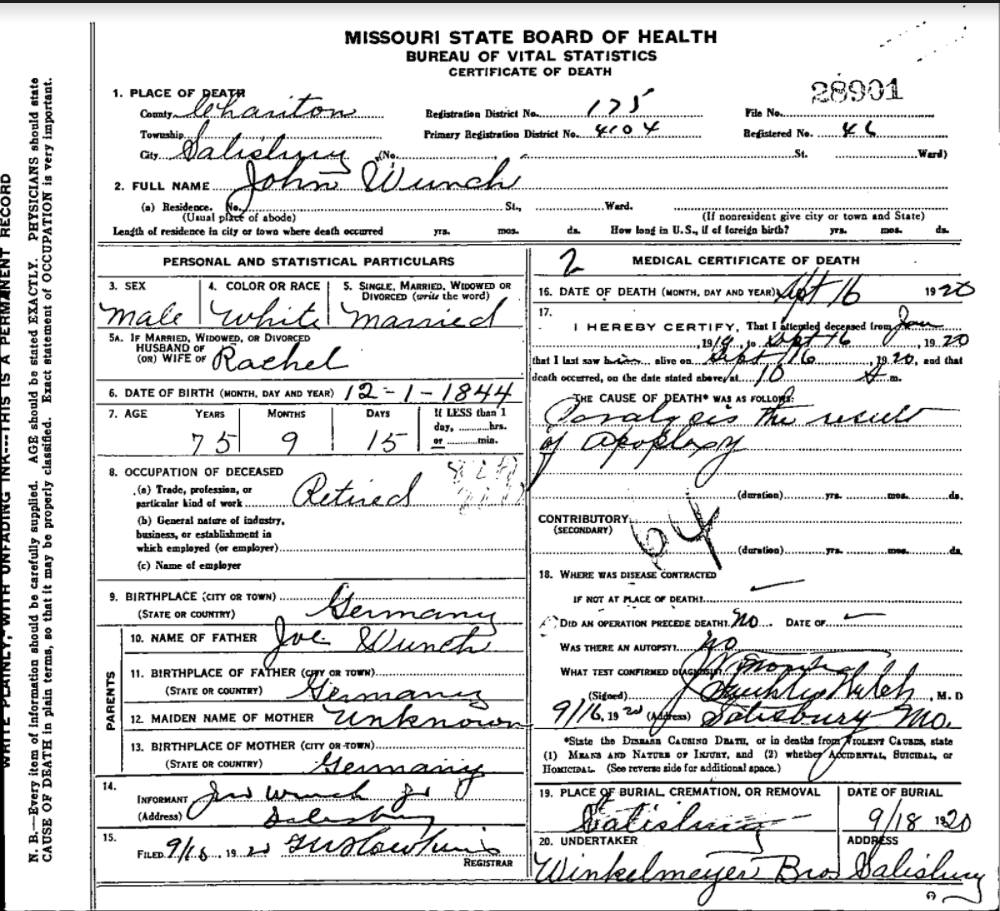 MISSOURI STATE BOARD OF HEALTH
BUREAU OF VITAL STATISTICS
CERTIFICATE OF DEATH
28901
1. PLACE OF DEATH
County Chariton Registration District No. 175 File No.
Township Primary Registration District No. 4104 Registered No. 46
City Salisbury (No. St. Ward)
2. FULL NAME John Wunch
(a) Residence. No. St., Ward.
(Usual place of abode) (If nonresident give city or town and State)
Length of residence in city or town where death occurred yrs. mos. ds. How long in U.S., if of foreign birth? yrs. mos. ds.
PERSONAL AND STATISTICAL PARTICULARS
3. SEX 4. COLOR OR RACE 5. SINGLE, MARRIED, WIDOWED OR
DIVORCED (write the word)
Male White Married
5A. IF MARRIED, WIDOWED, OR DIVORCED
HUSBAND OF
(OR) WIFE OF Rachel
6. DATE OF BIRTH (MONTH, DAY AND YEAR) 12-1-1844
7. AGE YEARS MONTHS DAYS If LESS than 1
day, hrs.
75 9 15 or min.
8. OCCUPATION OF DECEASED
(a) Trade, profession, or
particular kind of work Retired
(b) General nature of industry,
business, or establishment in
which employed (or employer)
(c) Name of employer
9. BIRTHPLACE (CITY OR TOWN)
(STATE OR COUNTRY) Germany
PARENTS
10. NAME OF FATHER Joe Wunch
11. BIRTHPLACE OF FATHER (CITY OR TOWN)
(STATE OR COUNTRY) Germany
12. MAIDEN NAME OF MOTHER Unknown
13. BIRTHPLACE OF MOTHER (CITY OR TOWN)
(STATE OR COUNTRY) Germany
14.
INFORMANT Wunch Jr
(Address) Salisbury
15.
FILED 9/16, 1920
REGISTRAR
2 MEDICAL CERTIFICATE OF DEATH
16. DATE OF DEATH (MONTH, DAY AND YEAR) Sept 16 1920
17.
I HEREBY CERTIFY, That I attended deceased from Jan
, 1919, to Sept 16, 1920
that I last saw him alive on Sept 16, 1920, and that
death occurred, on the date stated above, at 10 A m.
THE CAUSE OF DEATH* WAS AS FOLLOWS:
Paralysis the result
of apoplexy
(duration) yrs. mos. ds.
CONTRIBUTORY
(SECONDARY)
64
(duration) yrs. mos. ds.
18. WHERE WAS DISEASE CONTRACTED
IF NOT AT PLACE OF DEATH?
DID AN OPERATION PRECEDE DEATH? No DATE OF
WAS THERE AN AUTOPSY? No
WHAT TEST CONFIRMED DIAGNOSIS?
(Signed) Welch, M. D
9/16, 1920 (Address) Salisbury Mo.
*State the DISEASE CAUSING DEATH, or in deaths from VIOLENT CAUSES, state
(1) MEANS AND NATURE OF INJURY, and (2) whether ACCIDENTAL, SUICIDAL, or
HOMICIDAL. (See reverse side for additional space.)
19. PLACE OF BURIAL, CREMATION, OR REMOVAL DATE OF BURIAL
Salisbury 9/18 1920
20. UNDERTAKER ADDRESS
Winkelmeyer Bros Salisbury
WRITE PLAINLY, WITH UNFADING INK---THIS IS A PERMANENT RECORD
N. B.—Every item of information should be carefully supplied. AGE should be stated EXACTLY. PHYSICIANS should state
CAUSE OF DEATH in plain terms, so that it may be properly classified. Exact statement of OCCUPATION is very important.